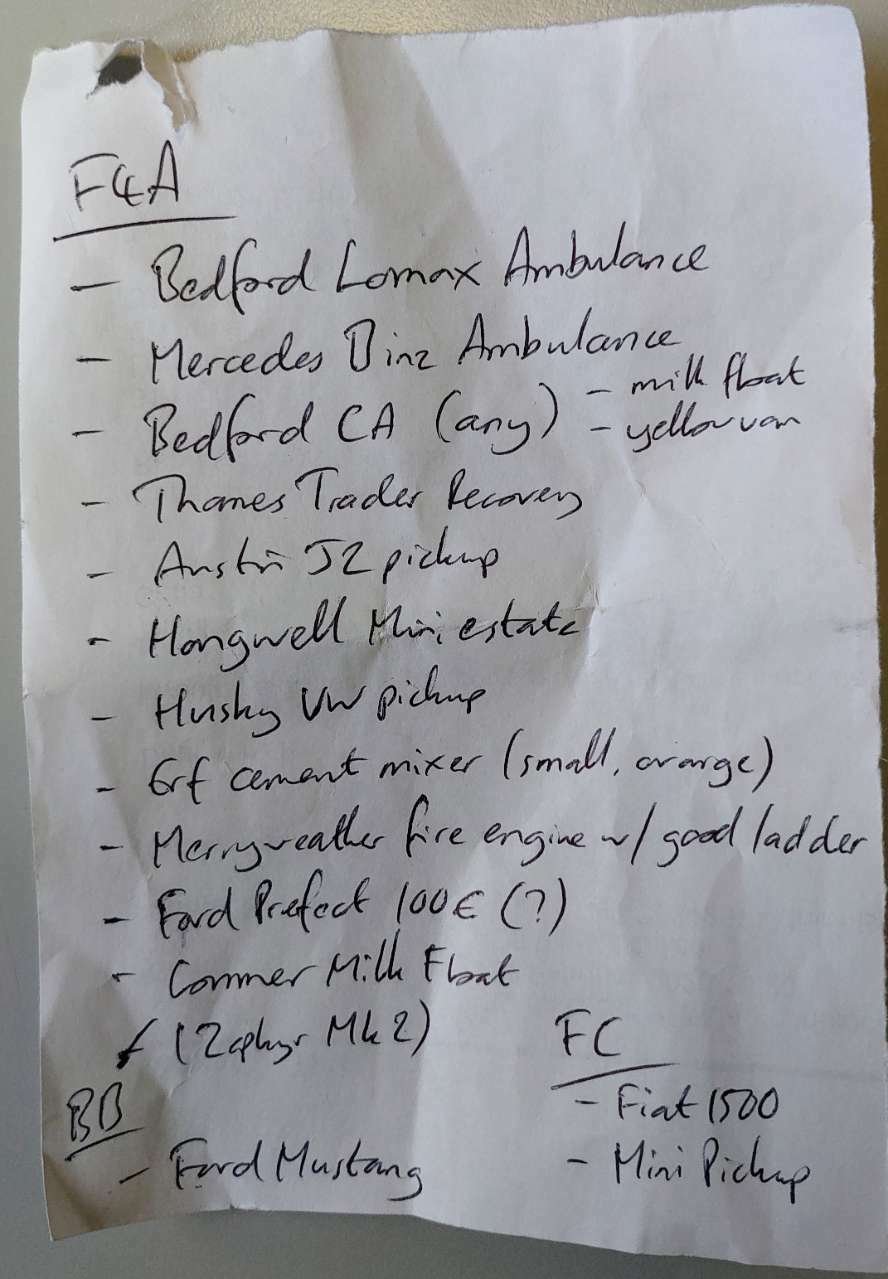 F&A
- Bedford Lomax Ambulance
- Mercedes Binz Ambulance
- Bedford CA (any) - milk float
- yellow van
- Thames Trader Recovery
- Austin J2 pickup
- Hongwell Mini estate
- Husky VW pickup
- Erf cement mixer (small, orange)
- Merryweather fire engine w/ good ladder
- Ford Prefect 100E (?)
- Commer Milk Float
(Zephyr Mk 2)
FC
- Fiat 1500
- Mini Pickup
BB
- Ford Mustang